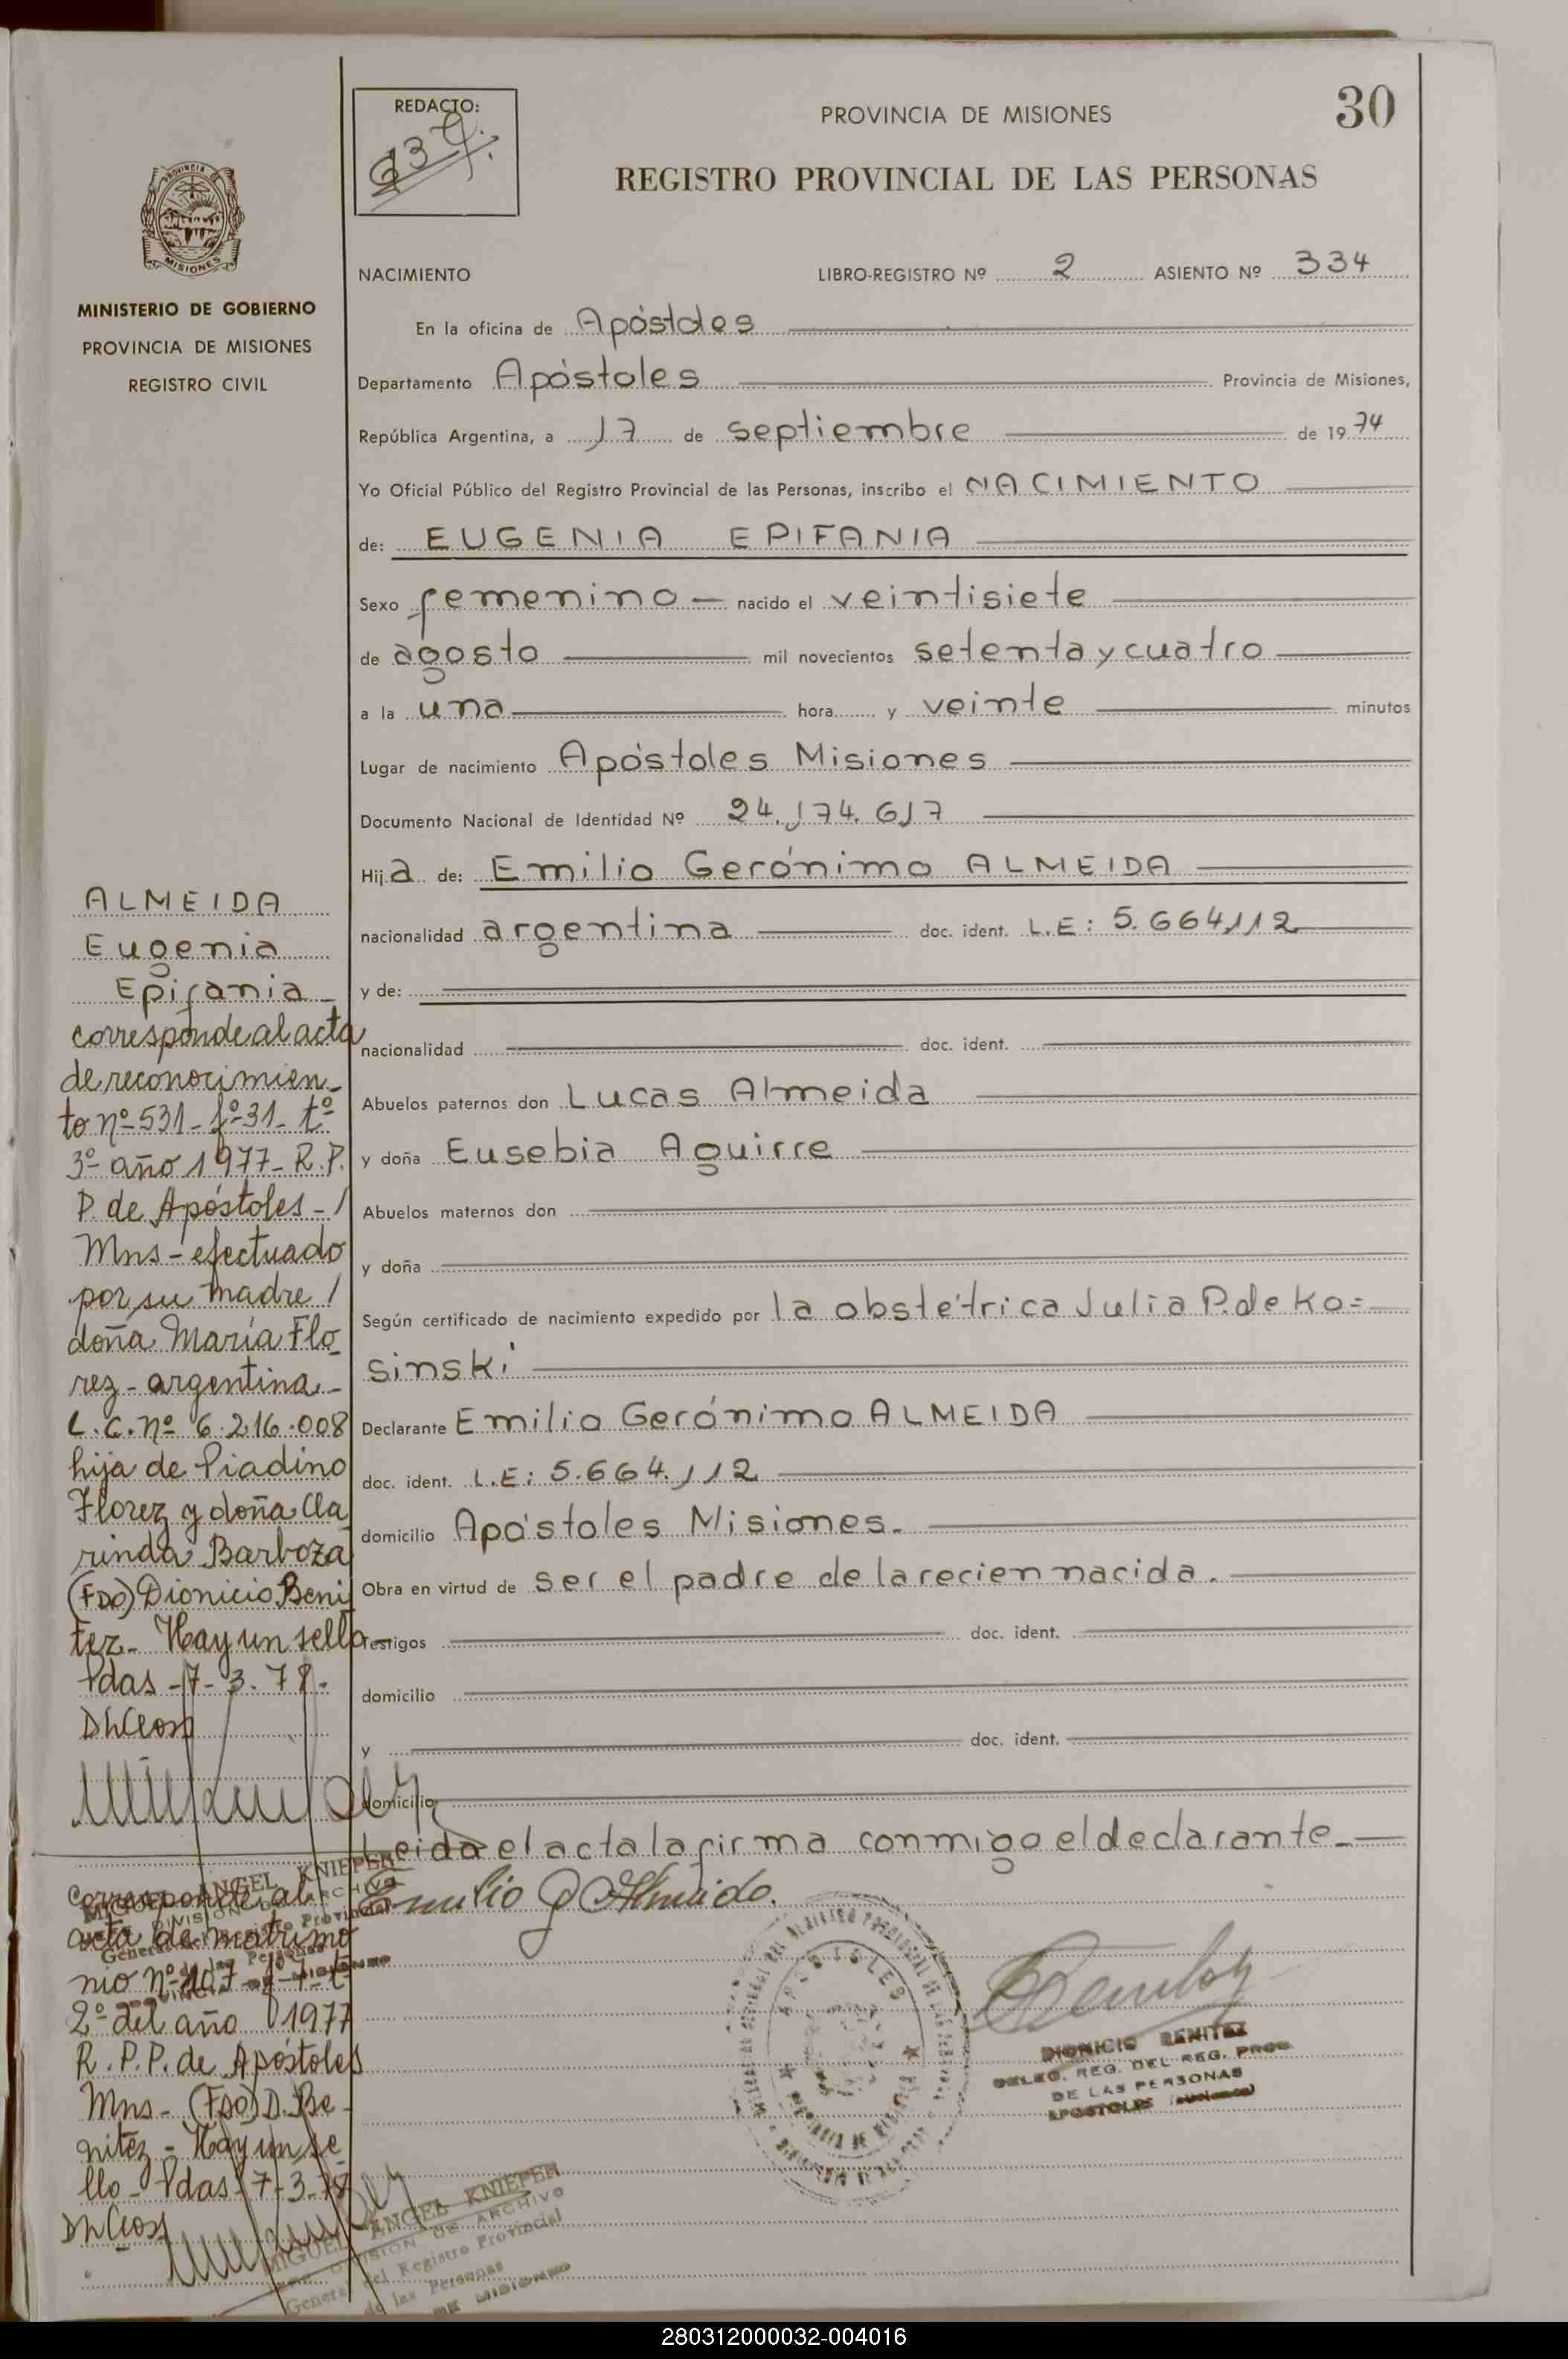 REDACTO:
PROVINCIA DE MISIONES
30
REGISTRO PROVINCIAL DE LAS PERSONAS
MISIONES
MINISTERIO DE GOBIERNO
PROVINCIA DE MISIONES
REGISTRO CIVIL
NACIMIENTO LIBRO-REGISTRO Nº 2 ASIENTO Nº 334
En la oficina de Apóstoles
Departamento Apóstoles Provincia de Misiones,
República Argentina, a 17 de septiembre de 1974
Yo Oficial Público del Registro Provincial de las Personas, inscribo el NACIMIENTO
de: EUGENIA EPIFANIA
Sexo femenino — nacido el veintisiete
de agosto mil novecientos setenta y cuatro
a la una hora y veinte minutos
Lugar de nacimiento Apóstoles Misiones
Documento Nacional de Identidad Nº 24.174.617
Hija de: Emilio Gerónimo ALMEIDA
nacionalidad argentina doc. ident. L.E: 5.664.112
y de:
nacionalidad doc. ident.
Abuelos paternos don Lucas Almeida
y doña Eusebia Aguirre
Abuelos maternos don
y doña
Según certificado de nacimiento expedido por la obstétrica Julia P. de Ko=
sinski
Declarante Emilio Gerónimo ALMEIDA
doc. ident. L.E: 5.664.112
domicilio Apóstoles Misiones.
Obra en virtud de ser el padre de la recien nacida.
Testigos doc. ident.
domicilio
y doc. ident.
domicilio
Leida el acta la firma conmigo el declarante.
Emilio G Almeida.
DIONICIO BENITEZ
DELEG. REG. DEL REG. PROV.
DE LAS PERSONAS
APOSTOLES
ALMEIDA
Eugenia
Epifania
corresponde al acta
de reconocimien_
to nº 531 - fº 31 - tº
3º año 1977 - R.P.
P. de Apóstoles - /
Mns - efectuado
por su madre /
doña María Flo_
rez - argentina -
L.C. nº 6.216.008
hija de Piadino
Florez y doña Cla
rinda Barboza
(FDO) Dionicio Beni
tez - Hay un sello
Pdas - 7 - 3 - 78.
Corresponde al
acta de matrimo
nio nº 107
2º del año 1977
R.P.P. de Apóstoles
Mns - (FDO) D. Be
nitez - Hay un se
llo - Pdas - 7 - 3 - 78
MIGUEL ANGEL KNIEPER
DIVISION DE ARCHIVO
General del Registro Provincial
de las Personas
DE MISIONES
280312000032-004016